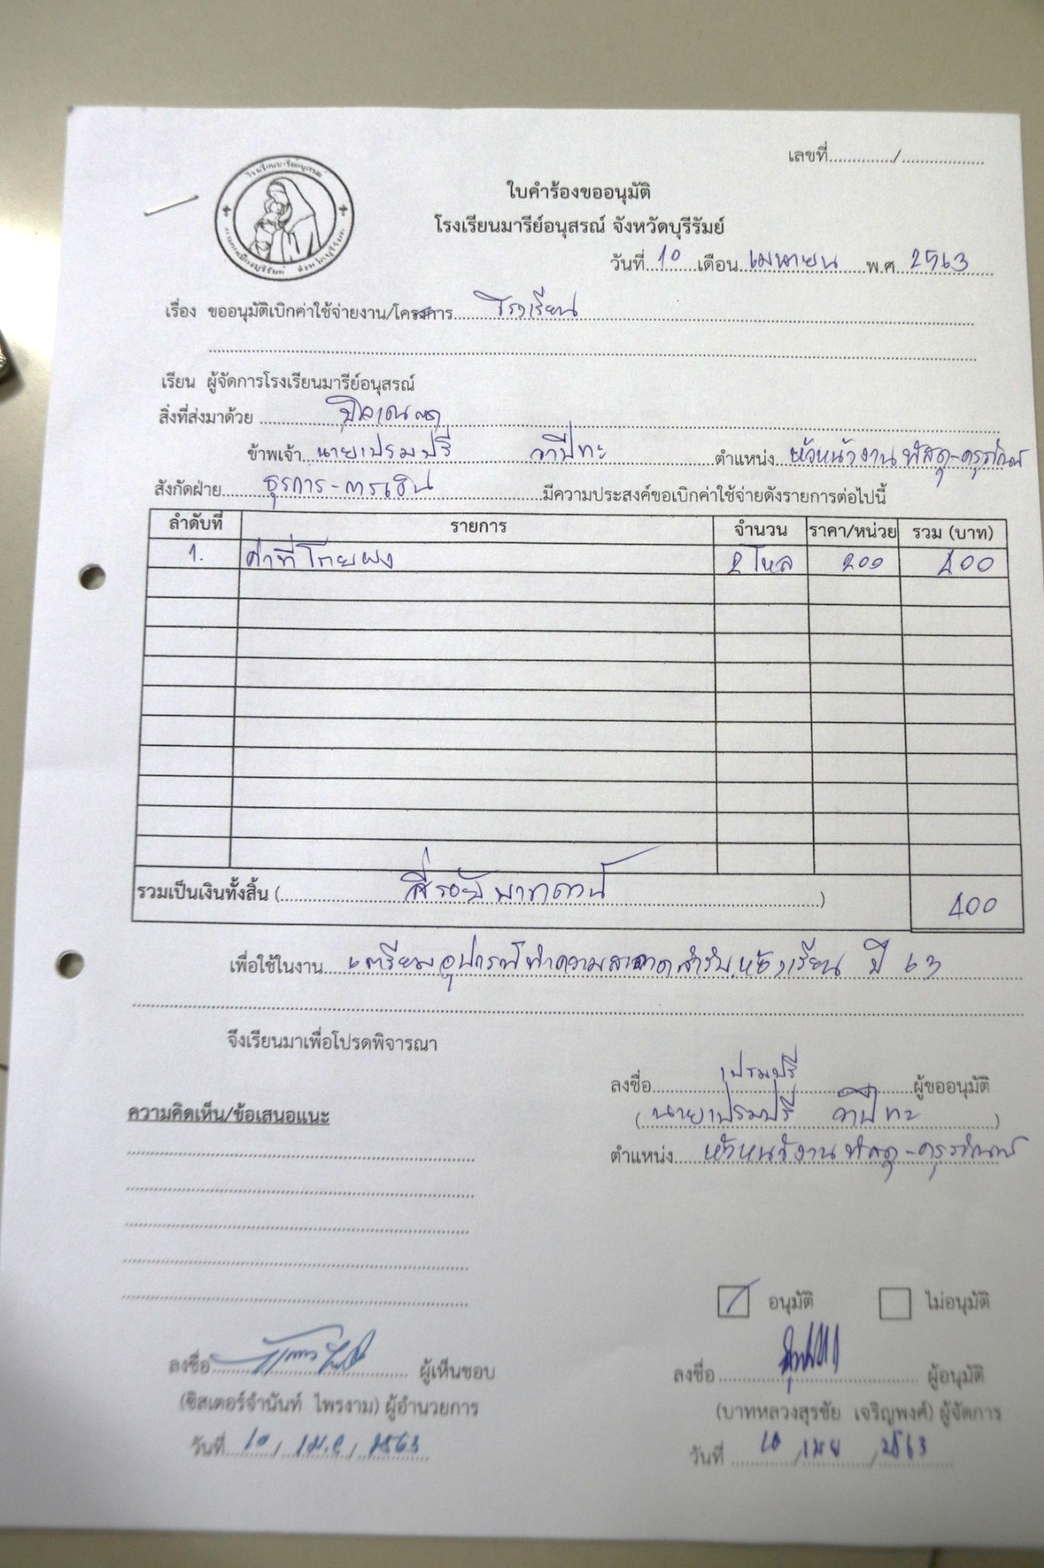 เลขที่............/...............
ใบคำร้องขออนุมัติ
โรงเรียนมารีย์อนุสรณ์ จังหวัดบุรีรัมย์
วันที่ 10 เดือน เมษายน พ.ศ. 2563
เรื่อง ขออนุมัติเบิกค่าใช้จ่ายงาน/โครงการ โรงเรียน
เรียน ผู้จัดการโรงเรียนมารีย์อนุสรณ์
สิ่งที่ส่งมาด้วย
ข้าพเจ้า นายเปรมปรี วาปีทะ ตำแหน่ง หัวหน้างานพัสดุ-ครุภัณฑ์
สังกัดฝ่าย ธุรการ-การเงิน มีความประสงค์ขอเบิกค่าใช้จ่ายดังรายการต่อไปนี้
ลำดับที่ รายการ จำนวน ราคา/หน่วย รวม (บาท)
1. ค่าที่โกยผง 2 โหล 200 400
รวมเป็นเงินทั้งสิ้น ( สี่ร้อยบาทถ้วน ) 400
เพื่อใช้ในงาน เตรียมอุปกรณ์ทำความสะอาดสำรับห้องเรียน ปี 63
จึงเรียนมาเพื่อโปรดพิจารณา
ลงชื่อ เปรมปรี ผู้ขออนุมัติ
(นายเปรมปรี วาปีทะ)
ความคิดเห็น/ข้อเสนอแนะ
ตำแหน่ง หัวหน้างานพัสดุ-ครุภัณฑ์
อนุมัติ ไม่อนุมัติ
ลงชื่อ ผู้เห็นชอบ ลงชื่อ ผู้อนุมัติ
(ซิสเตอร์จำนันท์ ไพรงาม) ผู้อำนวยการ (บาทหลวงสุรชัย เจริญพงศ์) ผู้จัดการ
วันที่ 10 / เม.ย / 2563 วันที่ 10 / เมย / 2563